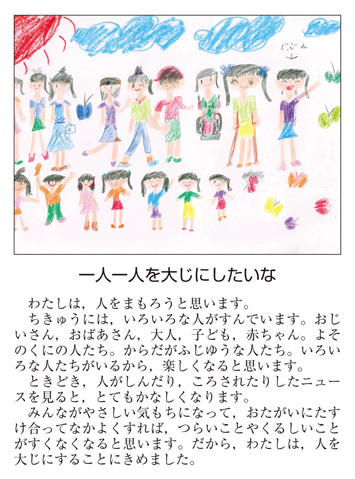 じぶん
一人一人を大じにしたいな
わたしは，人をまもろうと思います。
ちきゅうには，いろいろな人がすんでいます。おじ
いさん，おばあさん，大人，子ども，赤ちゃん。よそ
のくにの人たち。からだがふじゆうな人たち。いろい
ろな人たちがいるから，楽しくなると思います。
ときどき，人がしんだり，ころされたりしたニュー
スを見ると，とてもかなしくなります。
みんながやさしい気もちになって，おたがいにたす
け合ってなかよくすれば，つらいことやくるしいこと
がすくなくなると思います。だから，わたしは，人を
大じにすることにきめました。